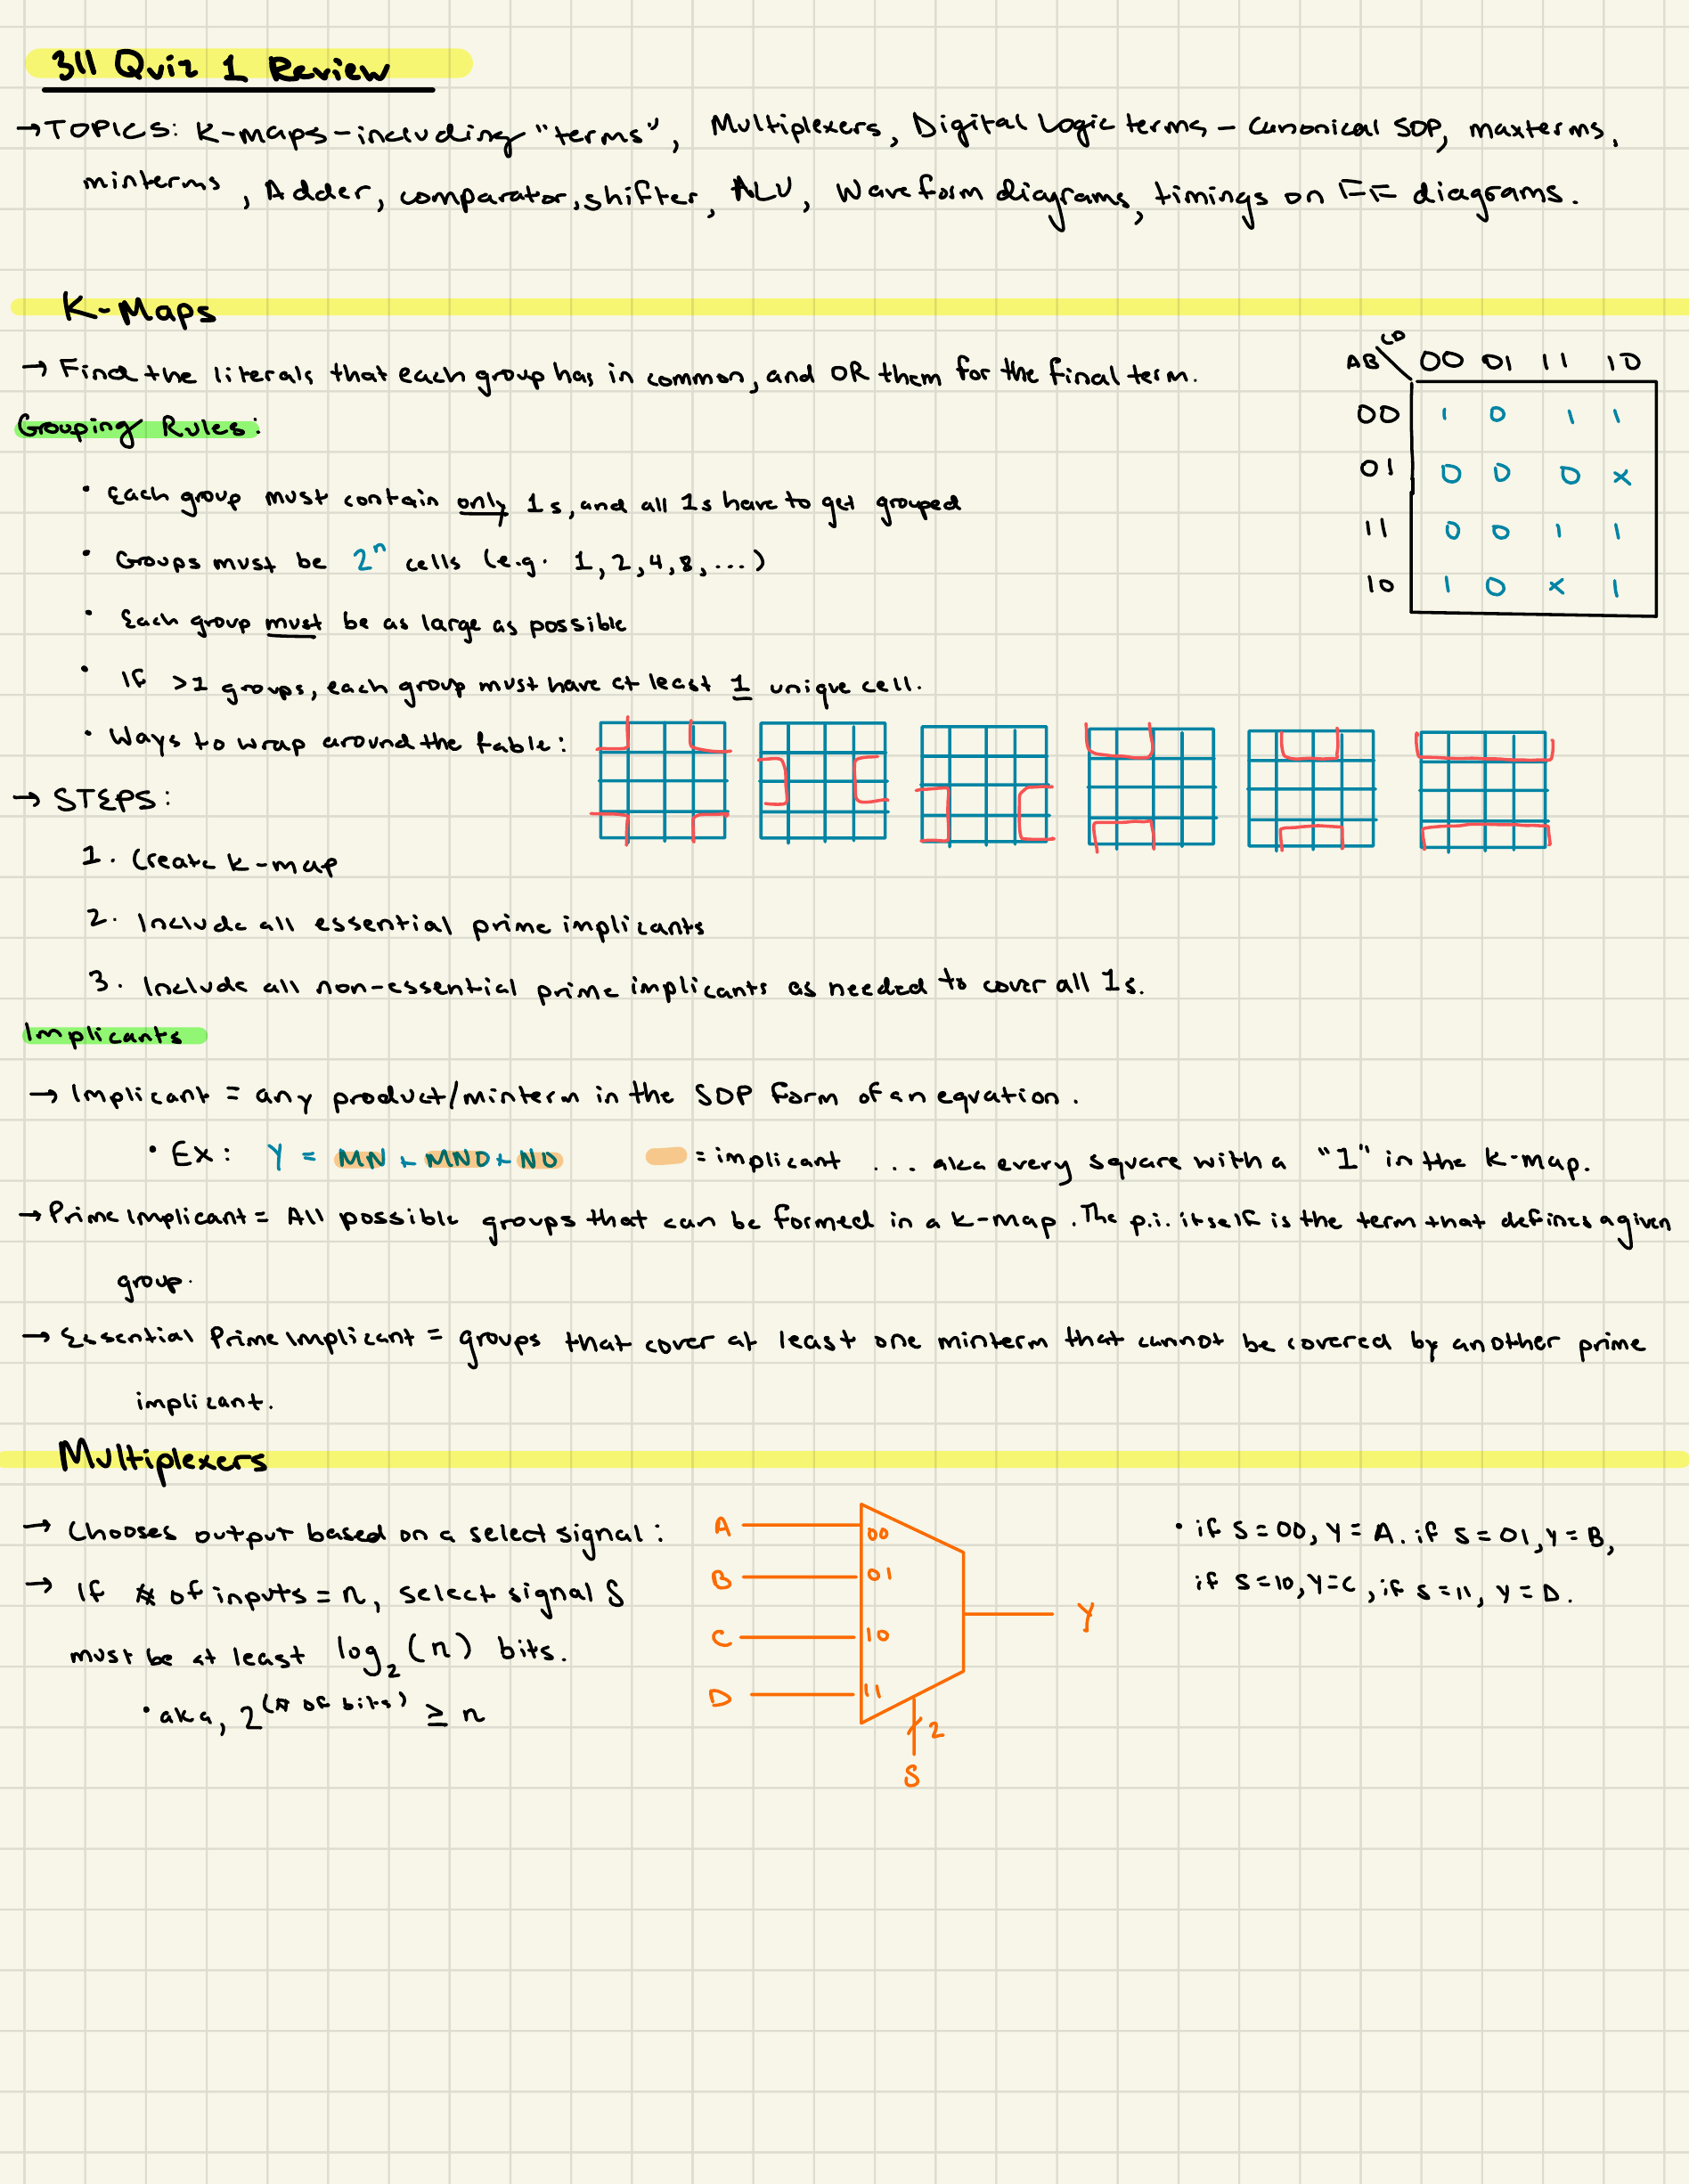 311 Quiz 1 Review
→ TOPICS: K-maps - including "terms", Multiplexers, Digital Logic terms - Canonical SOP, maxterms,
minterms, Adder, comparator, shifter, ALU, Waveform diagrams, timings on FF diagrams.
K-Maps
→ Find the literals that each group has in common, and OR them for the final term.
Grouping Rules:
• Each group must contain only 1s, and all 1s have to get grouped
• Groups must be 2ⁿ cells (e.g. 1, 2, 4, 8, ...)
• Each group must be as large as possible
• If >1 groups, each group must have at least 1 unique cell.
• Ways to wrap around the table:
AB\CD 00 01 11 10
00 1 0 1 1
01 0 0 0 x
11 0 0 1 1
10 1 0 x 1
→ STEPS:
1. Create K-map
2. Include all essential prime implicants
3. Include all non-essential prime implicants as needed to cover all 1s.
Implicants
→ Implicant = any product/minterm in the SOP form of an equation.
• Ex: Y = MN + MNO + NO = implicant ... aka every square with a "1" in the K-map.
→ Prime Implicant = All possible groups that can be formed in a K-map. The p.i. itself is the term that defines a given
group.
→ Essential Prime Implicant = groups that cover at least one minterm that cannot be covered by another prime
implicant.
Multiplexers
→ Chooses output based on a select signal:
→ If # of inputs = n, select signal S
must be at least log₂(n) bits.
• aka, 2^(# of bits) ≥ n
A 00
B 01
C 10
D 11
Y
2
S
• if S=00, Y=A. if S=01, Y=B,
if S=10, Y=C, if S=11, Y=D.